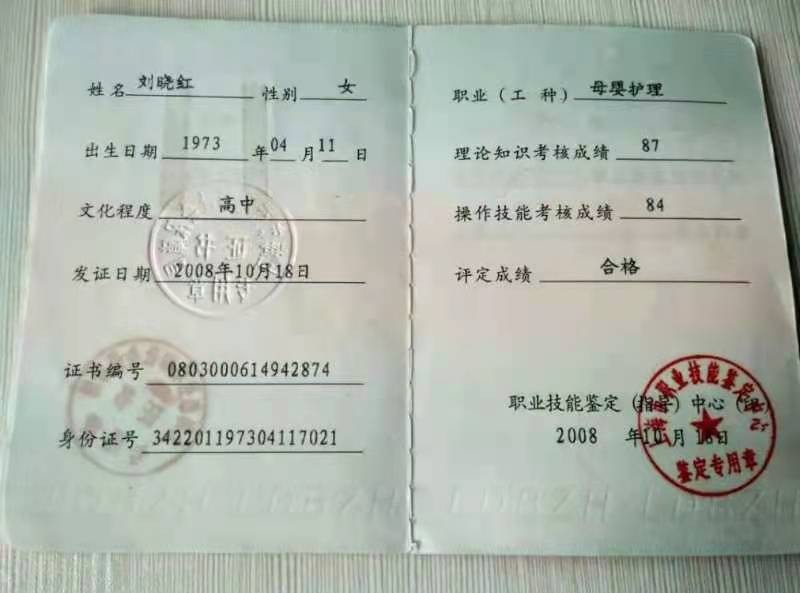 姓名 刘晓红 性别 女
出生日期 1973 年 04 月 11 日
文化程度 高中
发证日期 2008年10月18日
证书编号 0803000614942874
身份证号 342201197304117021
证书
专用章
职业（工 种） 母婴护理
理论知识考核成绩 87
操作技能考核成绩 84
评定成绩 合格
职业技能鉴定（指导）中心（印）
2008 年10月18日
职业技能鉴定
鉴定专用章